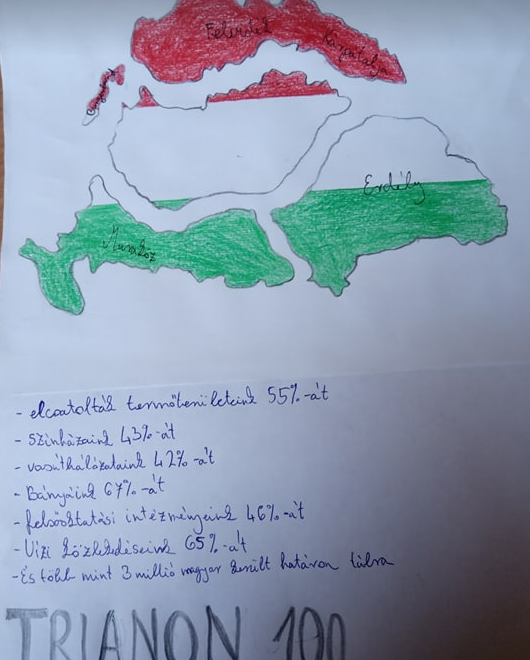 Felvidék
Kárpátalja
Erdély
Muraköz
- elcsatolták termőterületeink 55%-át
- színházaink 43%-át
- vasúthálózataink 42%-át
- Bányáink 67%-át
- felsőoktatási intézményeink 46%-át
- Vízi közlekedéseink 65%-át
- És több mint 3 millió magyar került határon túlra
TRIANON 100